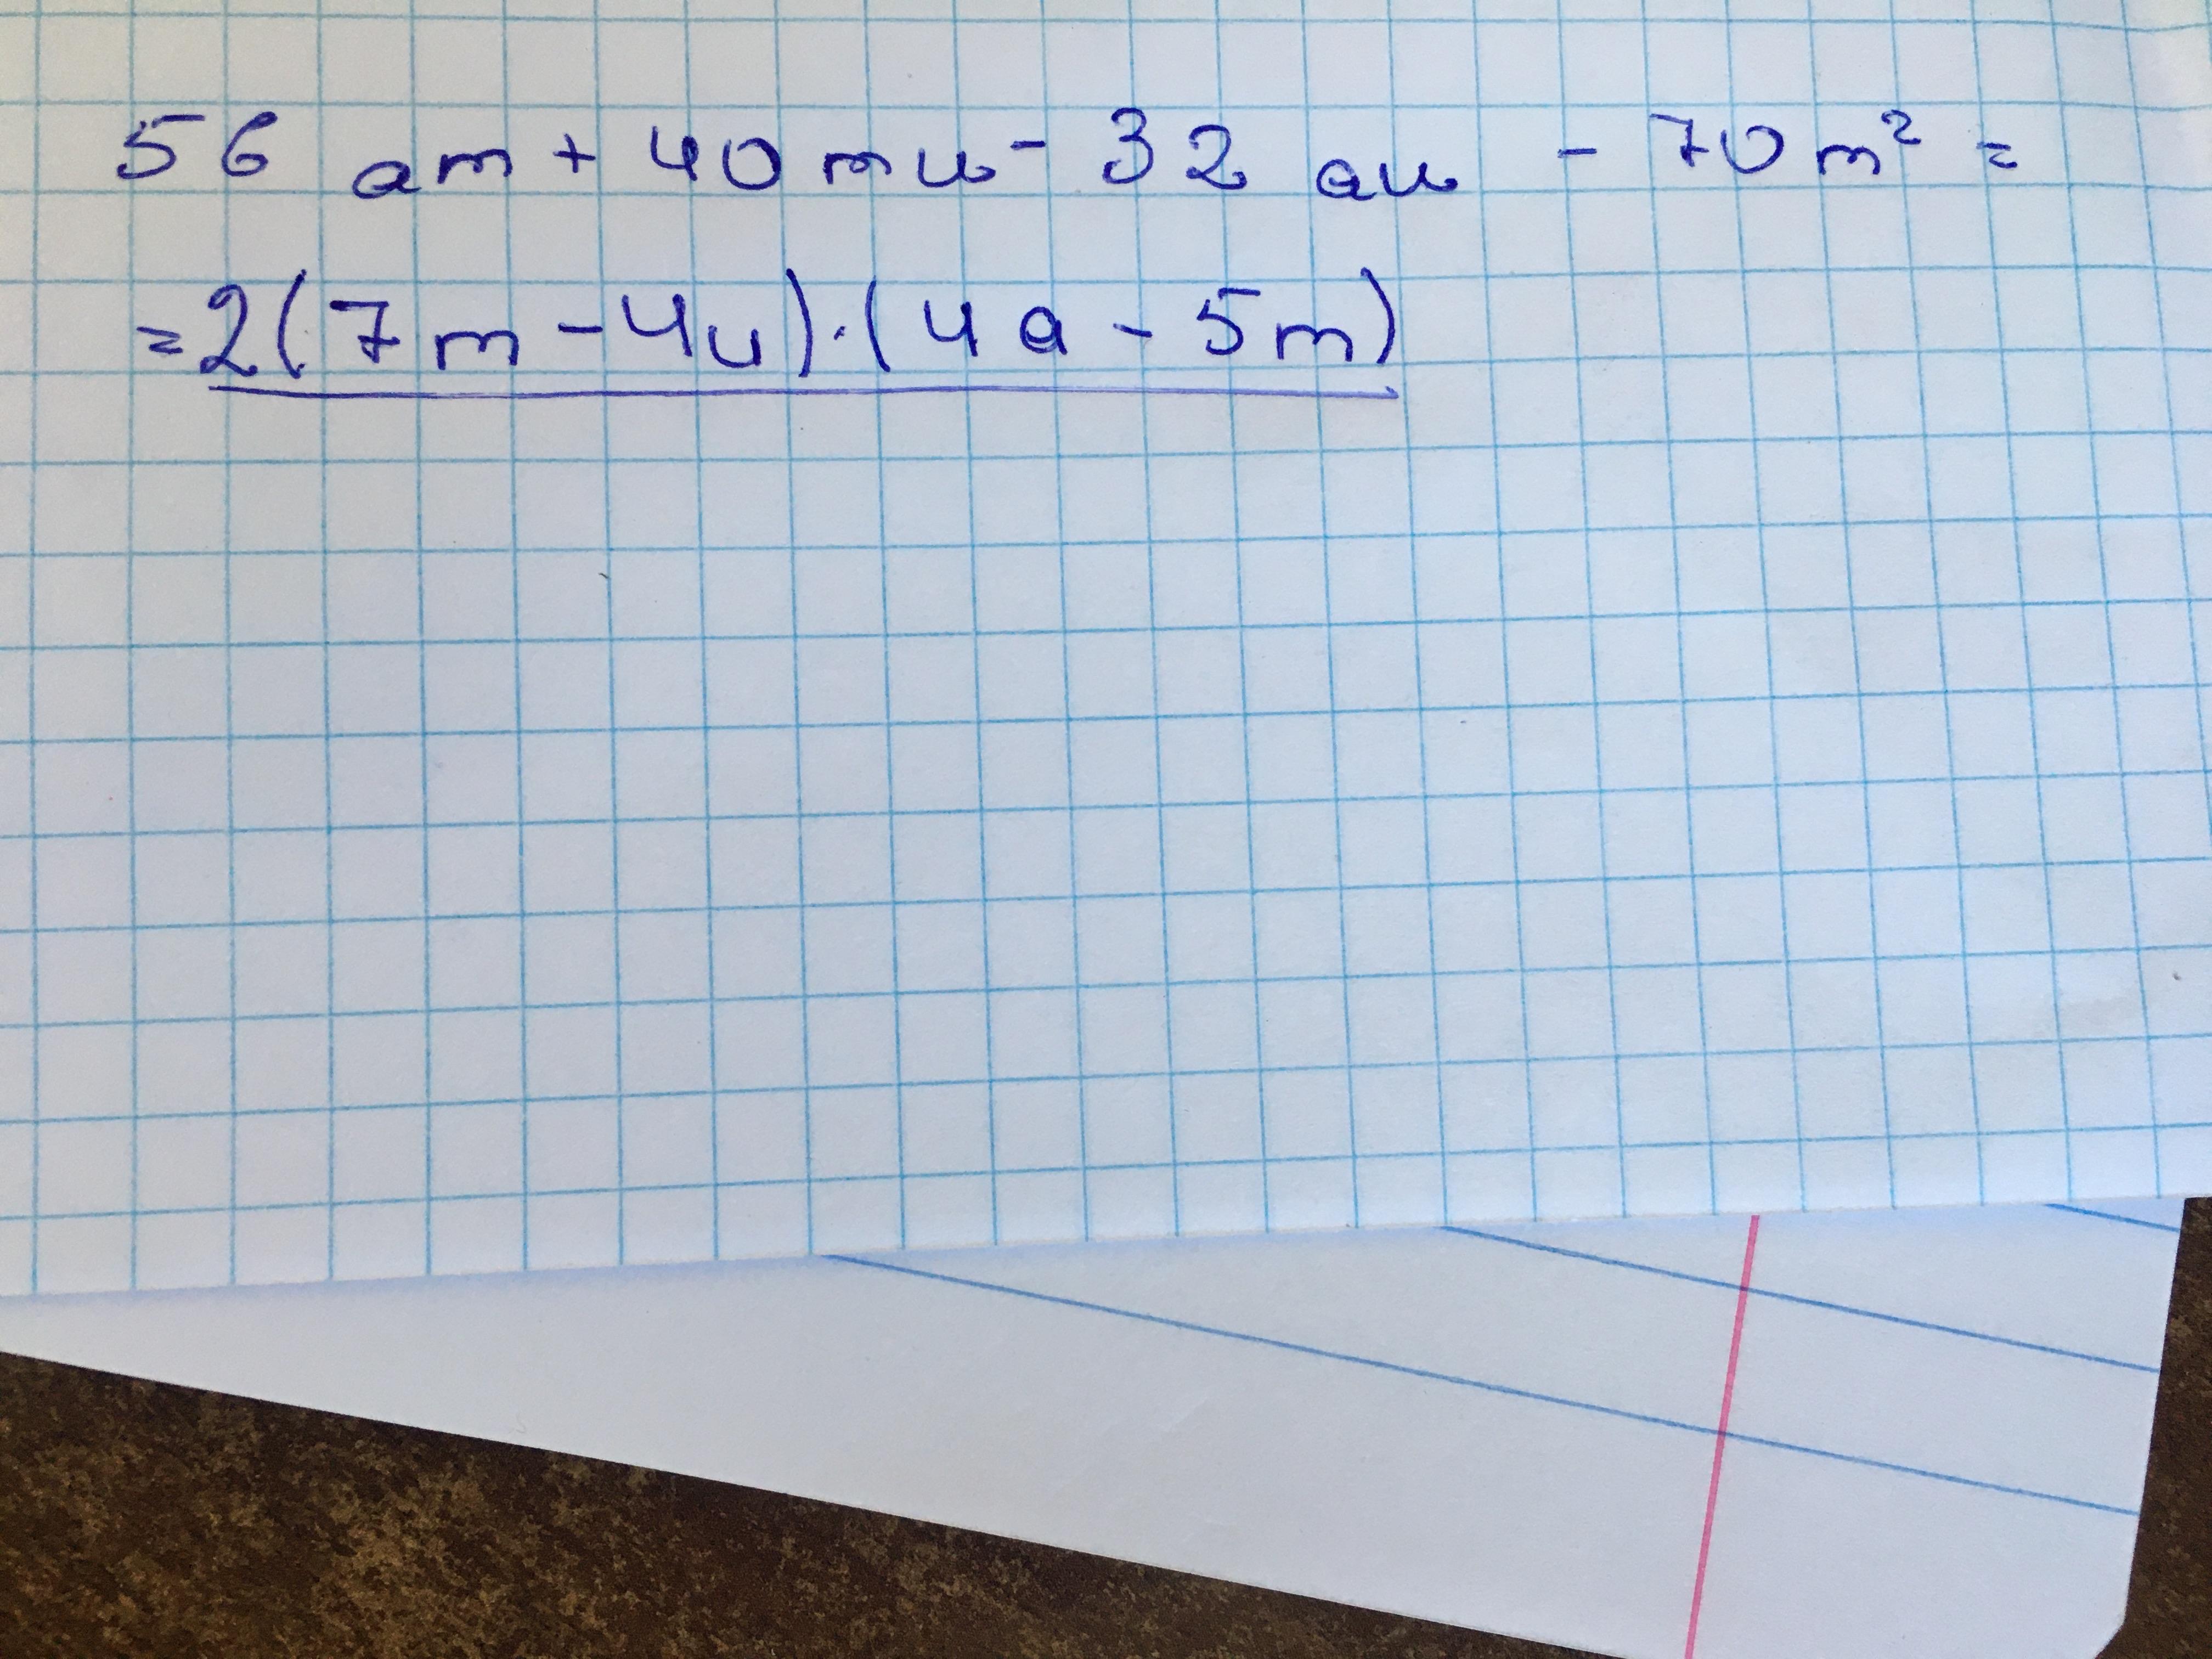 56 am + 40 mu - 32 au - 70 m² =
= 2(7m - 4u)·(4a - 5m)